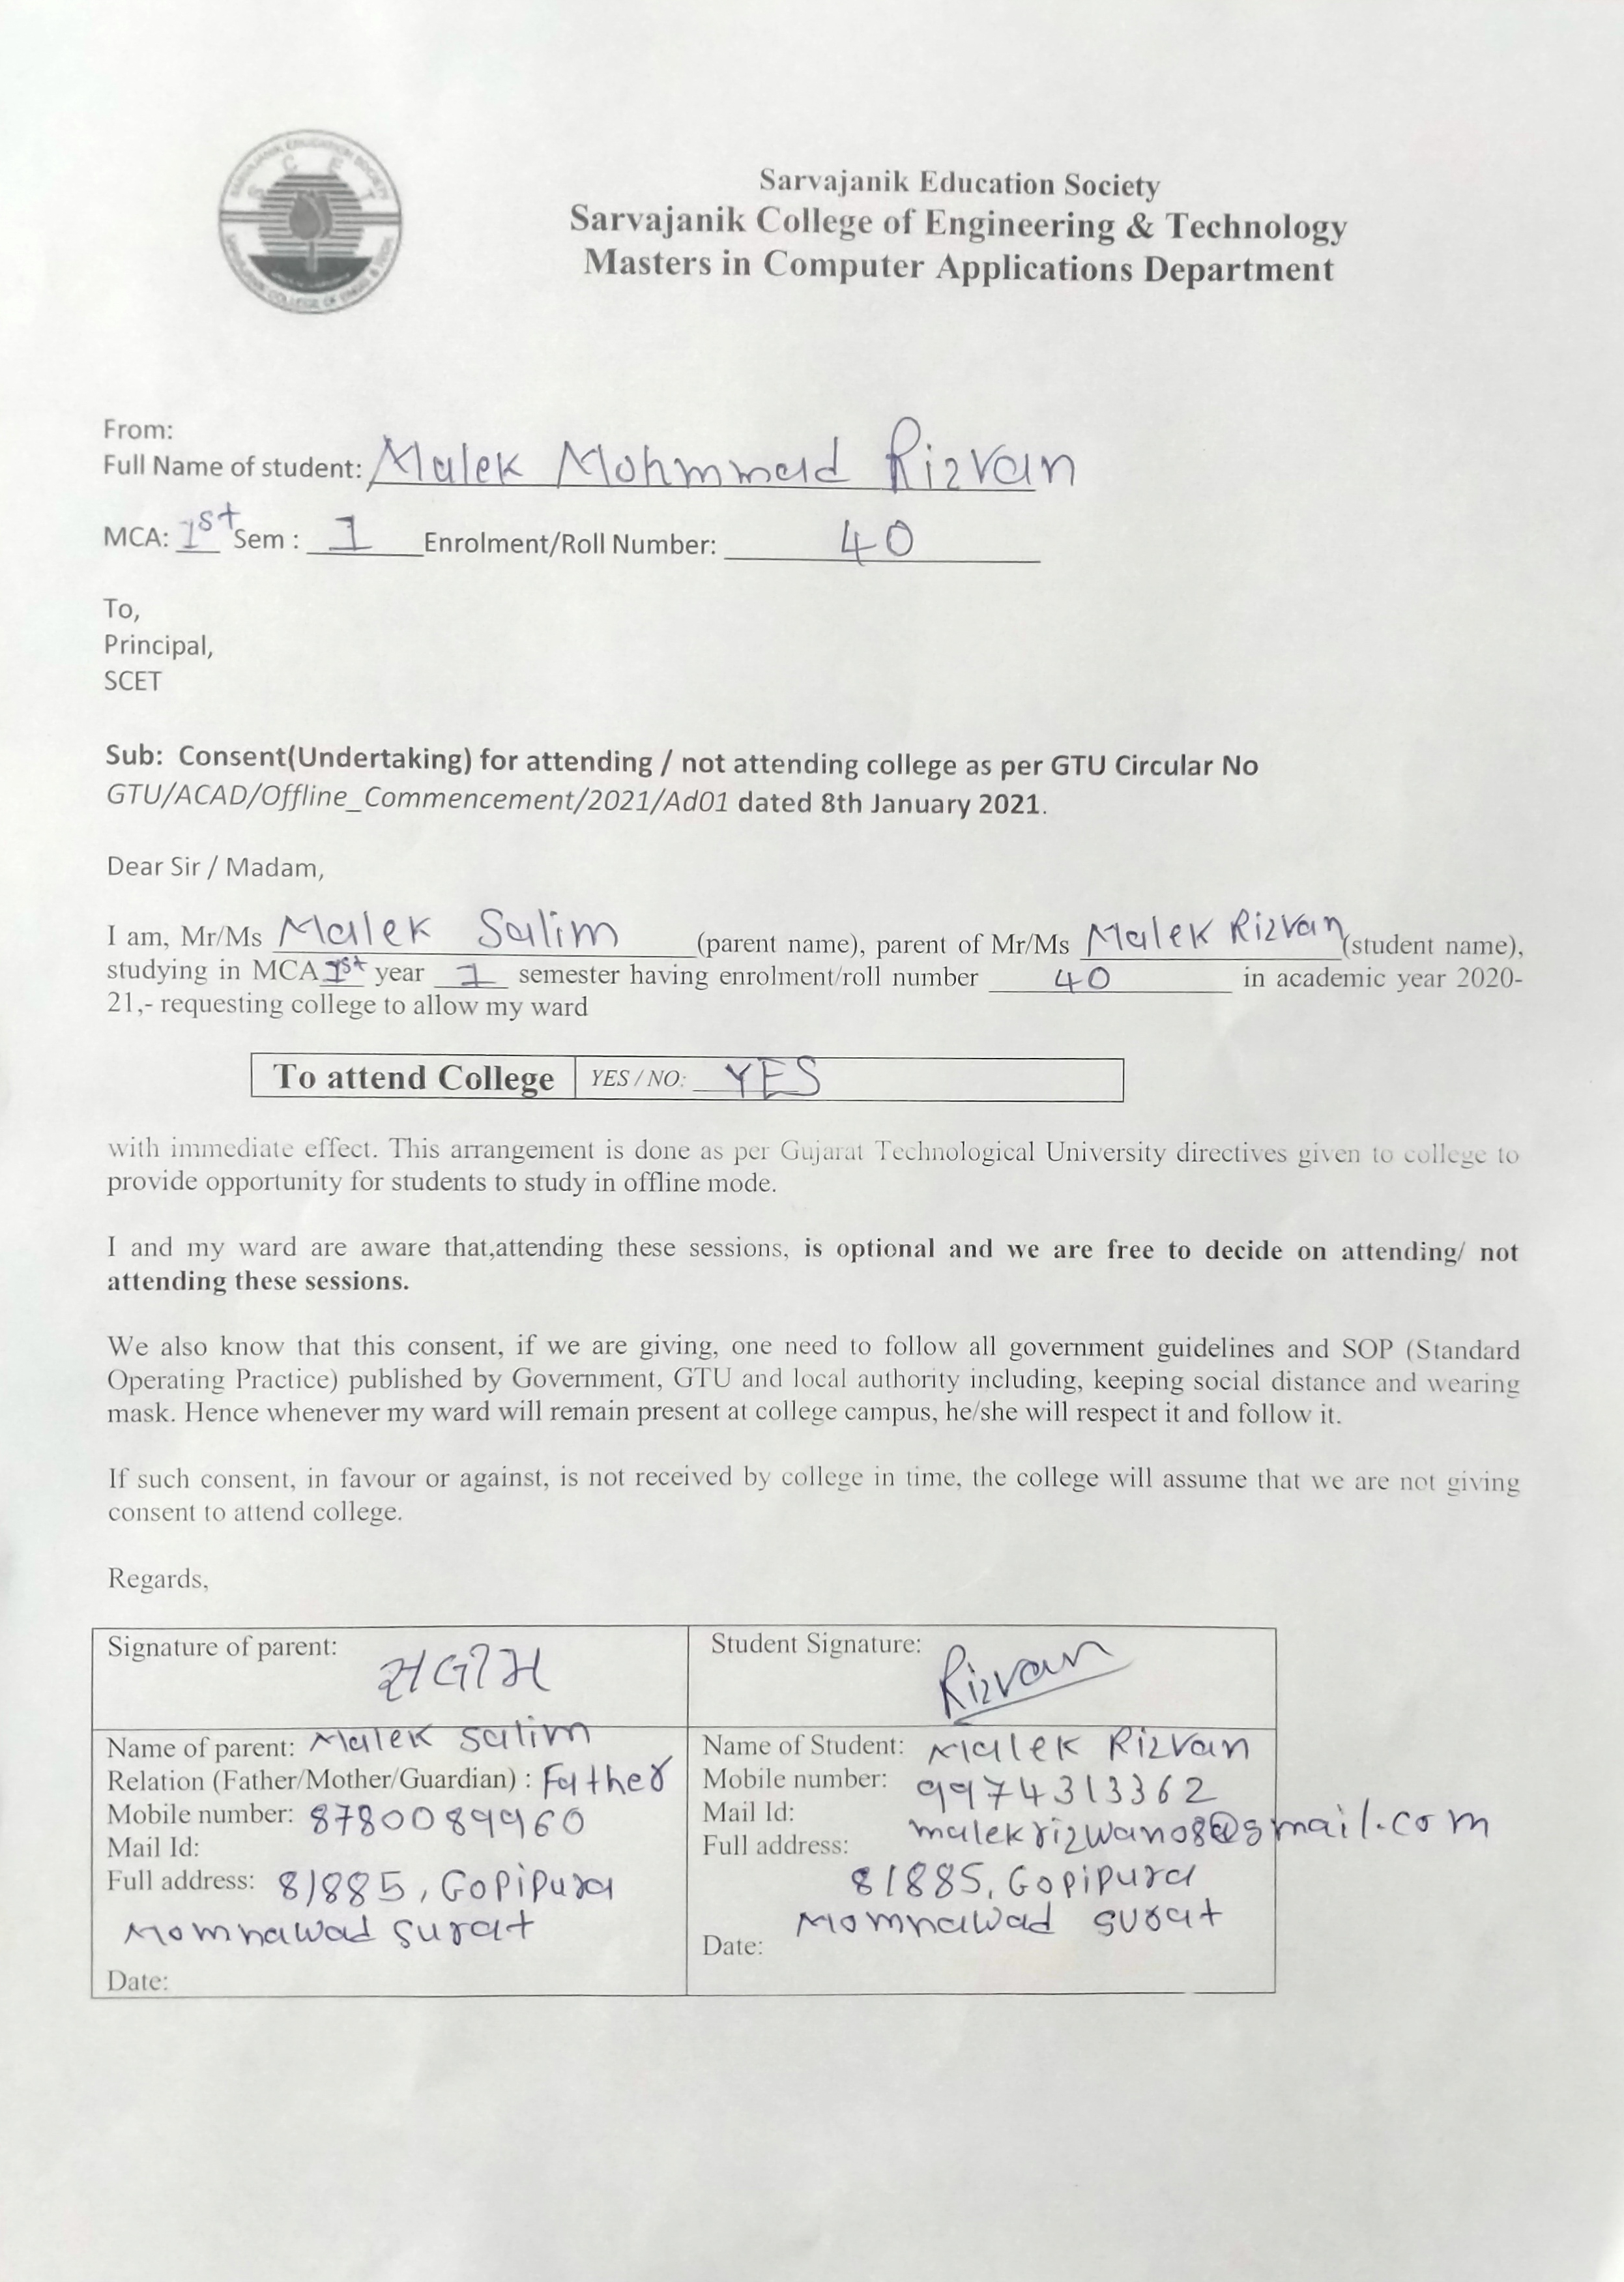 S C E T
Sarvajanik Education Society
Sarvajanik College of Engineering & Technology
Masters in Computer Applications Department
From:
Full Name of student: Malek Mohmmad Rizvan
MCA: 1st Sem : 1 Enrolment/Roll Number: 40
To,
Principal,
SCET
Sub: Consent(Undertaking) for attending / not attending college as per GTU Circular No
GTU/ACAD/Offline_Commencement/2021/Ad01 dated 8th January 2021.
Dear Sir / Madam,
I am, Mr/Ms Malek Salim (parent name), parent of Mr/Ms Malek Rizvan (student name),
studying in MCA 1st year 1 semester having enrolment/roll number 40 in academic year 2020-
21,- requesting college to allow my ward
To attend College YES / NO: YES
with immediate effect. This arrangement is done as per Gujarat Technological University directives given to college to
provide opportunity for students to study in offline mode.
I and my ward are aware that,attending these sessions, is optional and we are free to decide on attending/ not
attending these sessions.
We also know that this consent, if we are giving, one need to follow all government guidelines and SOP (Standard
Operating Practice) published by Government, GTU and local authority including, keeping social distance and wearing
mask. Hence whenever my ward will remain present at college campus, he/she will respect it and follow it.
If such consent, in favour or against, is not received by college in time, the college will assume that we are not giving
consent to attend college.
Regards,
Signature of parent:
Student Signature: Rizvan
Name of parent: Malek Salim
Relation (Father/Mother/Guardian) : Father
Mobile number: 8780089960
Mail Id:
Full address: 8/885, Gopipura
Momnawad Surat
Date:
Name of Student: Malek Rizvan
Mobile number: 9974313362
Mail Id: malekrizwan08@gmail.com
Full address: 8/885, Gopipura
Momnawad Surat
Date: